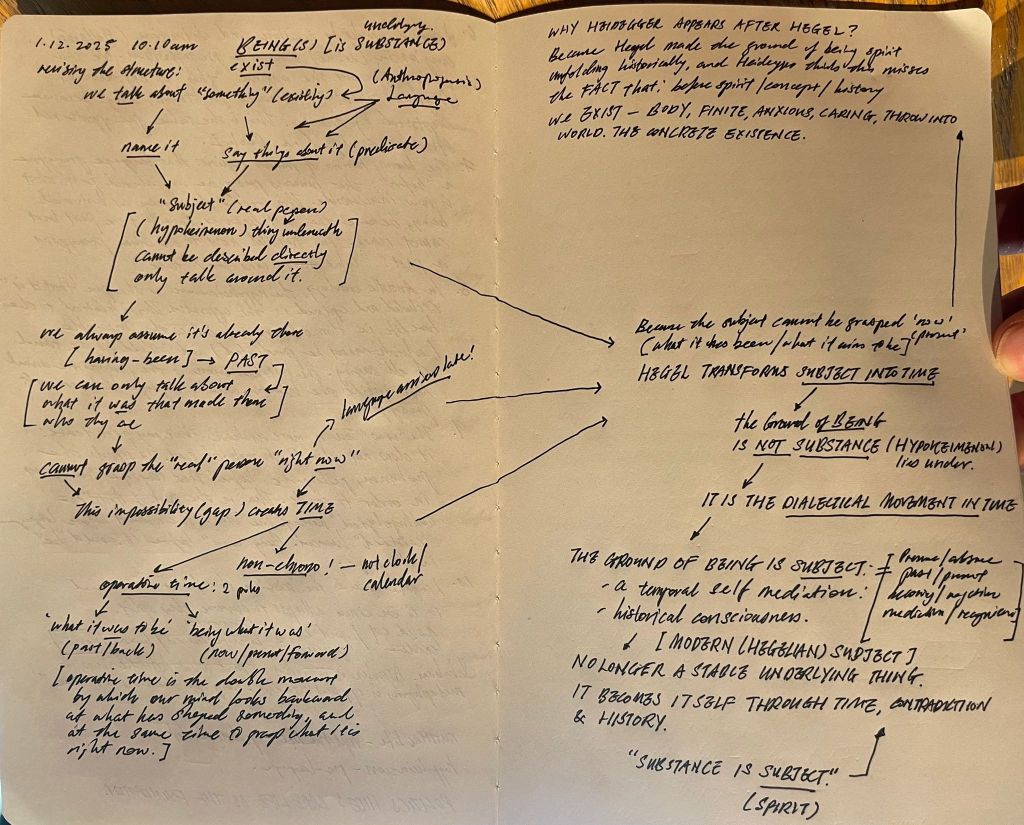 1.12.2025 10.10am
underlying.
BEING(S) [is SUBSTANCE)
revising the structure:
exist
(Anthropogenesis)
Language
we talk about "something" (existing)
name it
say things about it (predicate)
"Subject" (real person)
(hypokeimenon) thing underneath
cannot be described directly
only talk around it.
we always assume it's already there
[having-been] → PAST
[we can only talk about
what it was that made them
who they are]
language arrives late!
cannot grasp the "real" person "right now"
This impossibility (gap) creates TIME
non-chrono! — not clock/
calendar
operative time: 2 poles
'what it was to be' 'being what it was'
(past/back) (now/present/forward)
[operative time is the double movement
by which our mind looks backward
at what has shaped somebody, and
at the same time to grasp what it is
right now.]
WHY HEIDEGGER APPEARS AFTER HEGEL?
Because Hegel made the ground of being spirit
unfolding historically, and Heidegger thinks this misses
the FACT that: before spirit/concept/history
WE EXIST — BODY, FINITE, ANXIOUS, CARING, THROWN INTO
WORLD. THE CONCRETE EXISTENCE.
Because the subject cannot be grasped 'now'
'present'
(what it has been/what it aims to be]
HEGEL TRANSFORMS SUBJECT INTO TIME
the Ground of BEING
IS NOT SUBSTANCE (HYPOKEIMENON)
lies under.
IT IS THE DIALECTICAL MOVEMENT IN TIME
THE GROUND OF BEING IS SUBJECT:
- a temporal self mediation:
- historical consciousness.
[Presence/absence
past/present
becoming/negation
mediation/recognition]
[MODERN (HEGELIAN) SUBJECT]
NO LONGER A STABLE UNDERLYING THING.
IT BECOMES ITSELF THROUGH TIME, CONTRADICTION
& HISTORY.
"SUBSTANCE IS SUBJECT."
(SPIRIT)